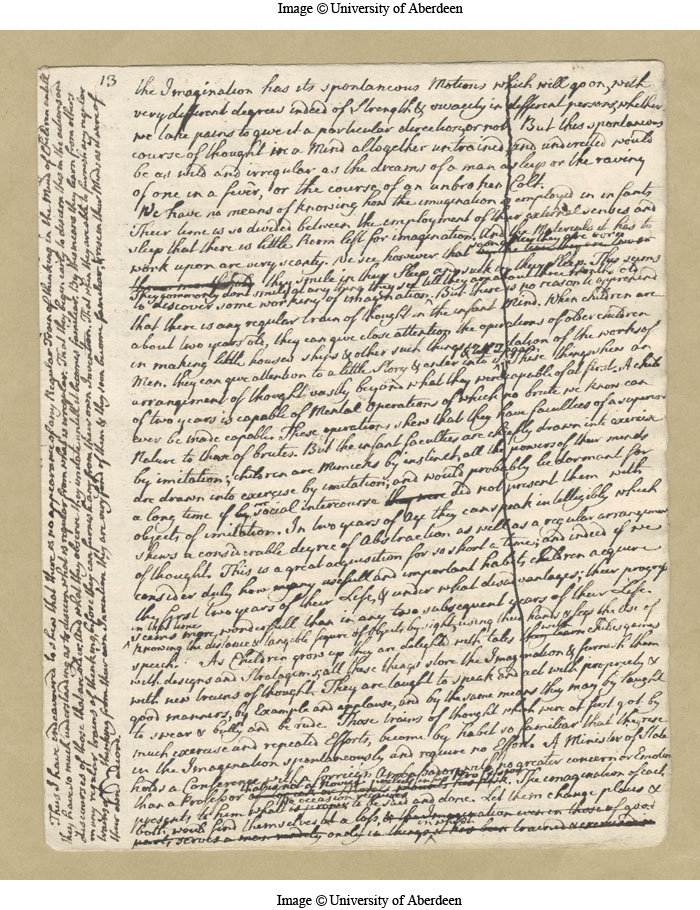 Image © University of Aberdeen
13
the Imagination has its spontaneous Motions which will go on, with
very different degrees indeed of Strength & vivacity in different persons, whether
we take pains to give it a particular direction, or not. But this spontaneous
course of thought in a Mind altogether untrained and undirected would
be as wild and irregular as the dreams of a man asleep or the raving
of one in a fever, or the course of an unbroken Colt.
We have no means of knowing how the imagination is employed in infants
Their time is so divided between the employment of their external senses and
sleep that there is little Room left for imagination. And the Materials it has to
work upon are very scanty. We see however that
they smile in their Sleep any suck in their Sleep. This seems
They commonly dont smile at any thing they see till they are about three months old
to discover some working of imagination. But there is no reason to apprehend
that there is any regular train of thought in the infant Mind. When children are
about two years old, they can give close attention the operations of older children
in making little houses ships & other such things in imitation of the works of
Men. they can give attention to a little Story & enter into it. These things shew an
arrangement of thought vastly beyond what they were capable of at first. A child
of two years is capable of Mental Operations of which no brute we know can
ever be made capable. These operations shew that they have faculties of a superior
Nature to those of brutes. But the infant faculties are chiefly drawn into exercise
by imitation; children are Mimicks by instinct, all the powers of their minds
are drawn into exercise by imitation; and would probably lie dormant for
a long time if social intercourse did not present them with
objects of imitation. In two years of Age they can speak intelligibly which
shews a considerable degree of Abstraction as well as a regular arrangement
of thought. This is a great acquisition for so short a time; and indeed if we
consider duly how many usefull and important habits children acquire
the first two years of their Life, & under what disadvantages; their progress
in this time
seems more wonderfull than in any two subsequent years of their Life.
knowing the distance & tangible figure of objects by sight, using their hands & legs the Use of
speech. As Children grow up they are delighted with tales
with designs and Stratagems; all these things store the Imagination & furnish them
with new trains of thought. They are taught to speak and act with propriety &
good manners, by Example and applause, and by the same means they may be taught
to swear & bully and be rude. Those trains of thought which were at first got by
much exercise and repeated Efforts, become by habit so familiar that they rise
in the Imagination spontaneously and require no Effort. A Minister of State
holds a Conference with a forreign Ambassador with no greater concern or Emotion
than a Professor
the occasion requires
presents to them what is proper to be said and done. Let them change places &
both would find themselves at a loss,
This I have endeavoured to shew that there is no appearance of any Regular Train of thinking in the Mind of Children untill
they have so much understanding as to discern what is regular from what is irregular. That they begin early to discern this in the actions and
discourses of those that are older, and what they observe they imitate untill it becomes familiar. By this means they learn from others
many regular trains of thinking, before they can furnish any from their own Invention. That when they are able to furnish any regular
train of thinking from their own Invention they are very fond of them & they soon become familiar,
their own accord
Image © University of Aberdeen